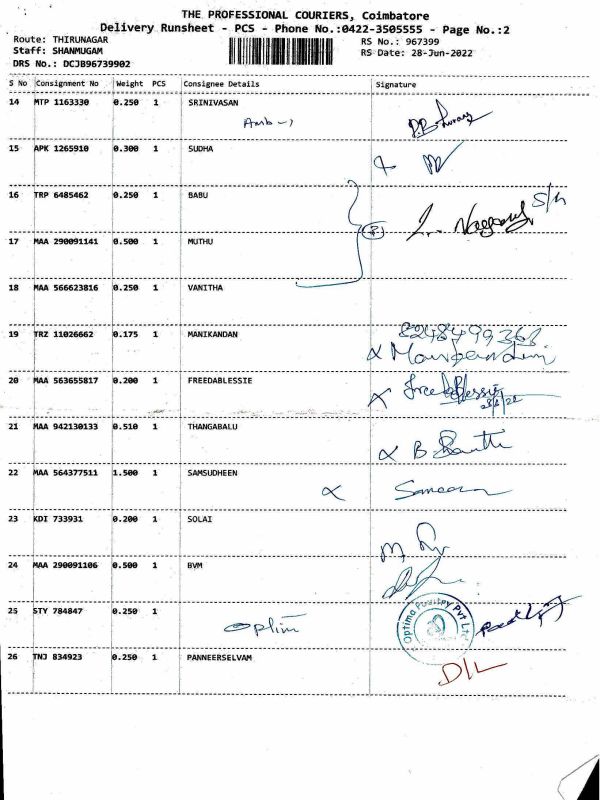 THE PROFESSIONAL COURIERS, Coimbatore
Delivery Runsheet - PCS - Phone No.:0422-3505555 - Page No.:2
Route: THIRUNAGAR
Staff: SHANMUGAM
DRS No.: DCJB96739902
RS No.: 967399
RS Date: 28-Jun-2022
S No Consignment No Weight PCS Consignee Details Signature
14 MTP 1163330 0.250 1 SRINIVASAN
15 APK 1265910 0.300 1 SUDHA
16 TRP 6485462 0.250 1 BABU
17 MAA 290091141 0.500 1 MUTHU
18 MAA 566623816 0.250 1 VANITHA
19 TRZ 11026662 0.175 1 MANIKANDAN
8248499363
20 MAA 563655817 0.200 1 FREEDABLESSIE
Freedablessie
21 MAA 942130133 0.510 1 THANGABALU
22 MAA 564377511 1.500 1 SAMSUDHEEN
23 KDI 733931 0.200 1 SOLAI
24 MAA 290091106 0.500 1 BVM
25 STY 784847 0.250 1
Optima Poultry Pvt Ltd
26 TNJ 834923 0.250 1 PANNEERSELVAM
D/L